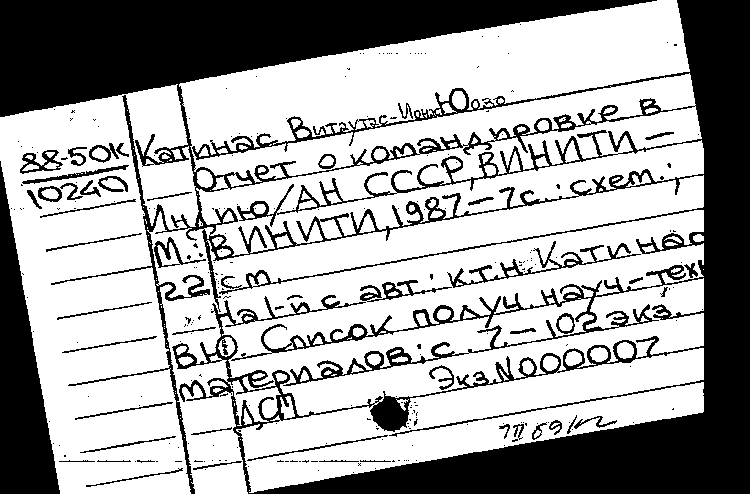 88-50К
10240
Катинас, Витаутас-Ионас Юозо
Отчет о командировке в
Индию/АН СССР, ВИНИТИ.—
М.: ВИНИТИ, 1987.— 7с.: схем.;
22 см.
На 1-й с. авт.: к.т.н. Катинас
В.Ю. Список получ. науч.-техн
материалов: с. 7.— 102 экз.
Экз.N000007.
ДСП.